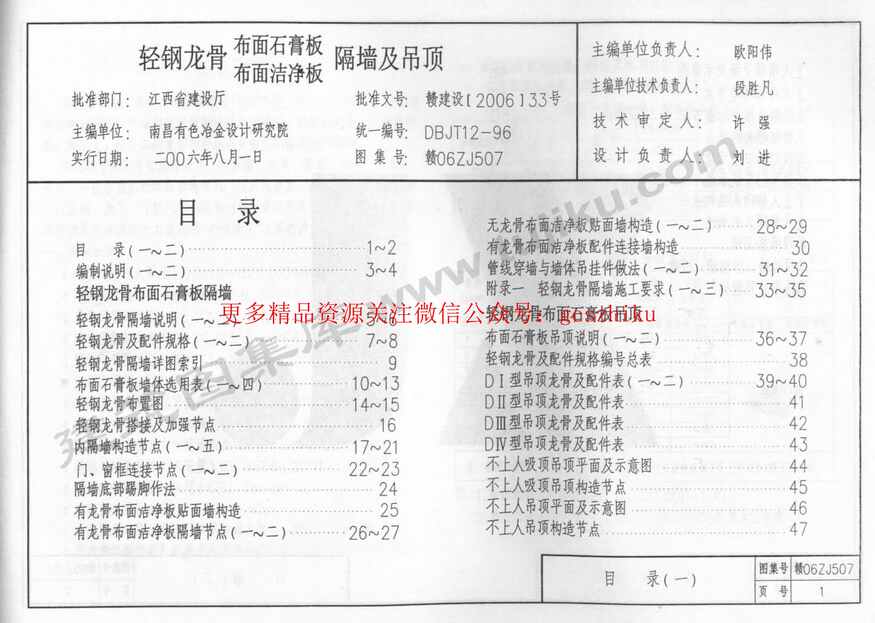 轻钢龙骨 布面石膏板 布面洁净板 隔墙及吊顶
批准部门：江西省建设厅 批准文号：赣建设[2006]33号
主编单位：南昌有色冶金设计研究院 统一编号：DBJT12-96
实行日期：二〇〇六年八月一日 图集号：赣06ZJ507
主编单位负责人：欧阳伟
主编单位技术负责人：段胜凡
技术审定人：许强
设计负责人：刘进
目录
目录(一~二) 1~2
编制说明(一~二) 3~4
轻钢龙骨布面石膏板隔墙
轻钢龙骨隔墙说明(一~二) 5~6
轻钢龙骨及配件规格(一~二) 7~8
轻钢龙骨隔墙详图索引 9
布面石膏板墙体选用表(一~四) 10~13
轻钢龙骨布置图 14~15
轻钢龙骨搭接及加强节点 16
内隔墙构造节点(一~五) 17~21
门、窗框连接节点(一~二) 22~23
隔墙底部踢脚作法 24
有龙骨布面洁净板贴面墙构造 25
有龙骨布面洁净板隔墙节点(一~二) 26~27
无龙骨布面洁净板贴面墙构造(一~二) 28~29
有龙骨布面洁净板配件连接墙构造 30
管线穿墙与墙体吊挂件做法(一~二) 31~32
附录一 轻钢龙骨隔墙施工要求(一~三) 33~35
轻钢龙骨布面石膏板吊顶
布面石膏板吊顶说明(一~二) 36~37
轻钢龙骨及配件规格编号总表 38
DⅠ型吊顶龙骨及配件表(一~二) 39~40
DⅡ型吊顶龙骨及配件表 41
DⅢ型吊顶龙骨及配件表 42
DⅣ型吊顶龙骨及配件表 43
不上人吸顶吊顶平面及示意图 44
不上人吸顶吊顶构造节点 45
不上人吊顶平面及示意图 46
不上人吊顶构造节点 47
更多精品资源关注微信公众号：gcszhiku
目录(一) 图集号 赣06ZJ507
页号 1